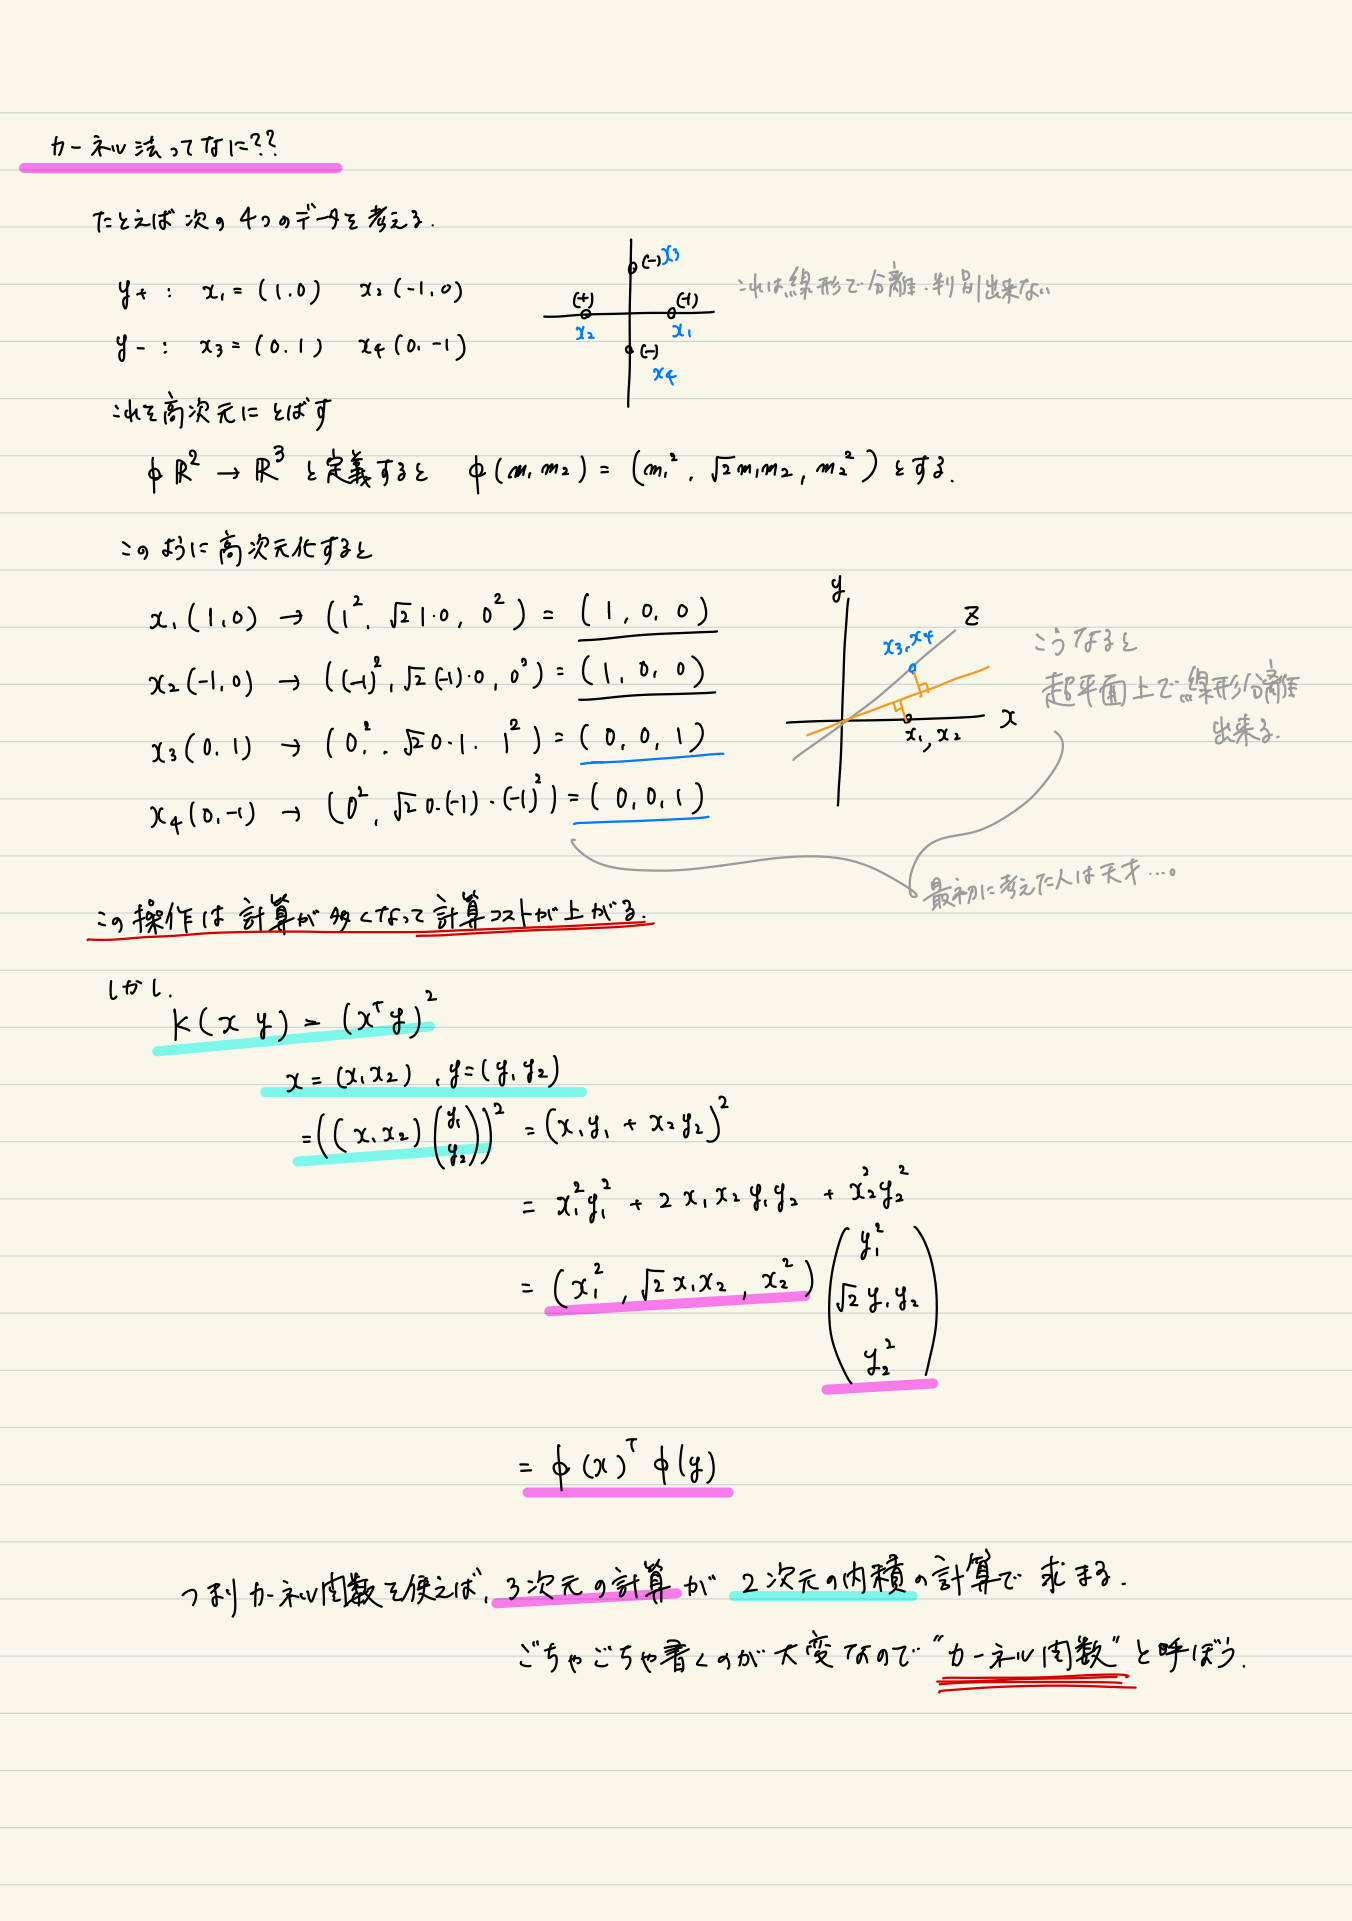 カーネル法ってなに??
たとえば次の4つのデータを考える.
y+ : x₁=(1.0) x₂(-1.0)
y- : x₃=(0.1) x₄(0.-1)
(-) x₃
(+) (-1)
x₂ x₁
(-)
x₄
これは線形で分離・判別出来ない
これを高次元にとばす
φ ℝ² → ℝ³ と定義すると φ(m₁ m₂) = (m₁², √2 m₁m₂, m₂²) とする.
このように高次元化すると
x₁(1,0) → (1², √2 1·0, 0²) = (1,0,0)
x₂(-1,0) → ((-1)², √2(-1)·0, 0²) = (1,0,0)
x₃(0,1) → (0², √2 0·1. 1²) = (0,0,1)
x₄(0,-1) → (0², √2 0·(-1)·(-1)²) = (0,0,1)
y
z
x₃,x₄
x
x₁, x₂
こうなると
超平面上で線形分離
出来る.
最初に考えた人は天才...。
この操作は計算が多くなって計算コストが上がる.
しかし.
K(x y) = (xᵀy)²
x=(x₁x₂) , y=(y₁y₂)
=((x₁x₂)(y₁ y₂))² = (x₁y₁ + x₂y₂)²
= x₁²y₁² + 2x₁x₂y₁y₂ + x₂²y₂²
= (x₁², √2x₁x₂, x₂²) (y₁² √2y₁y₂ y₂²)
= φ(x)ᵀ φ(y)
つまりカーネル関数を使えば, 3次元の計算が 2次元の内積の計算で求まる.
ごちゃごちゃ書くのが大変なので "カーネル関数" と呼ぼう.